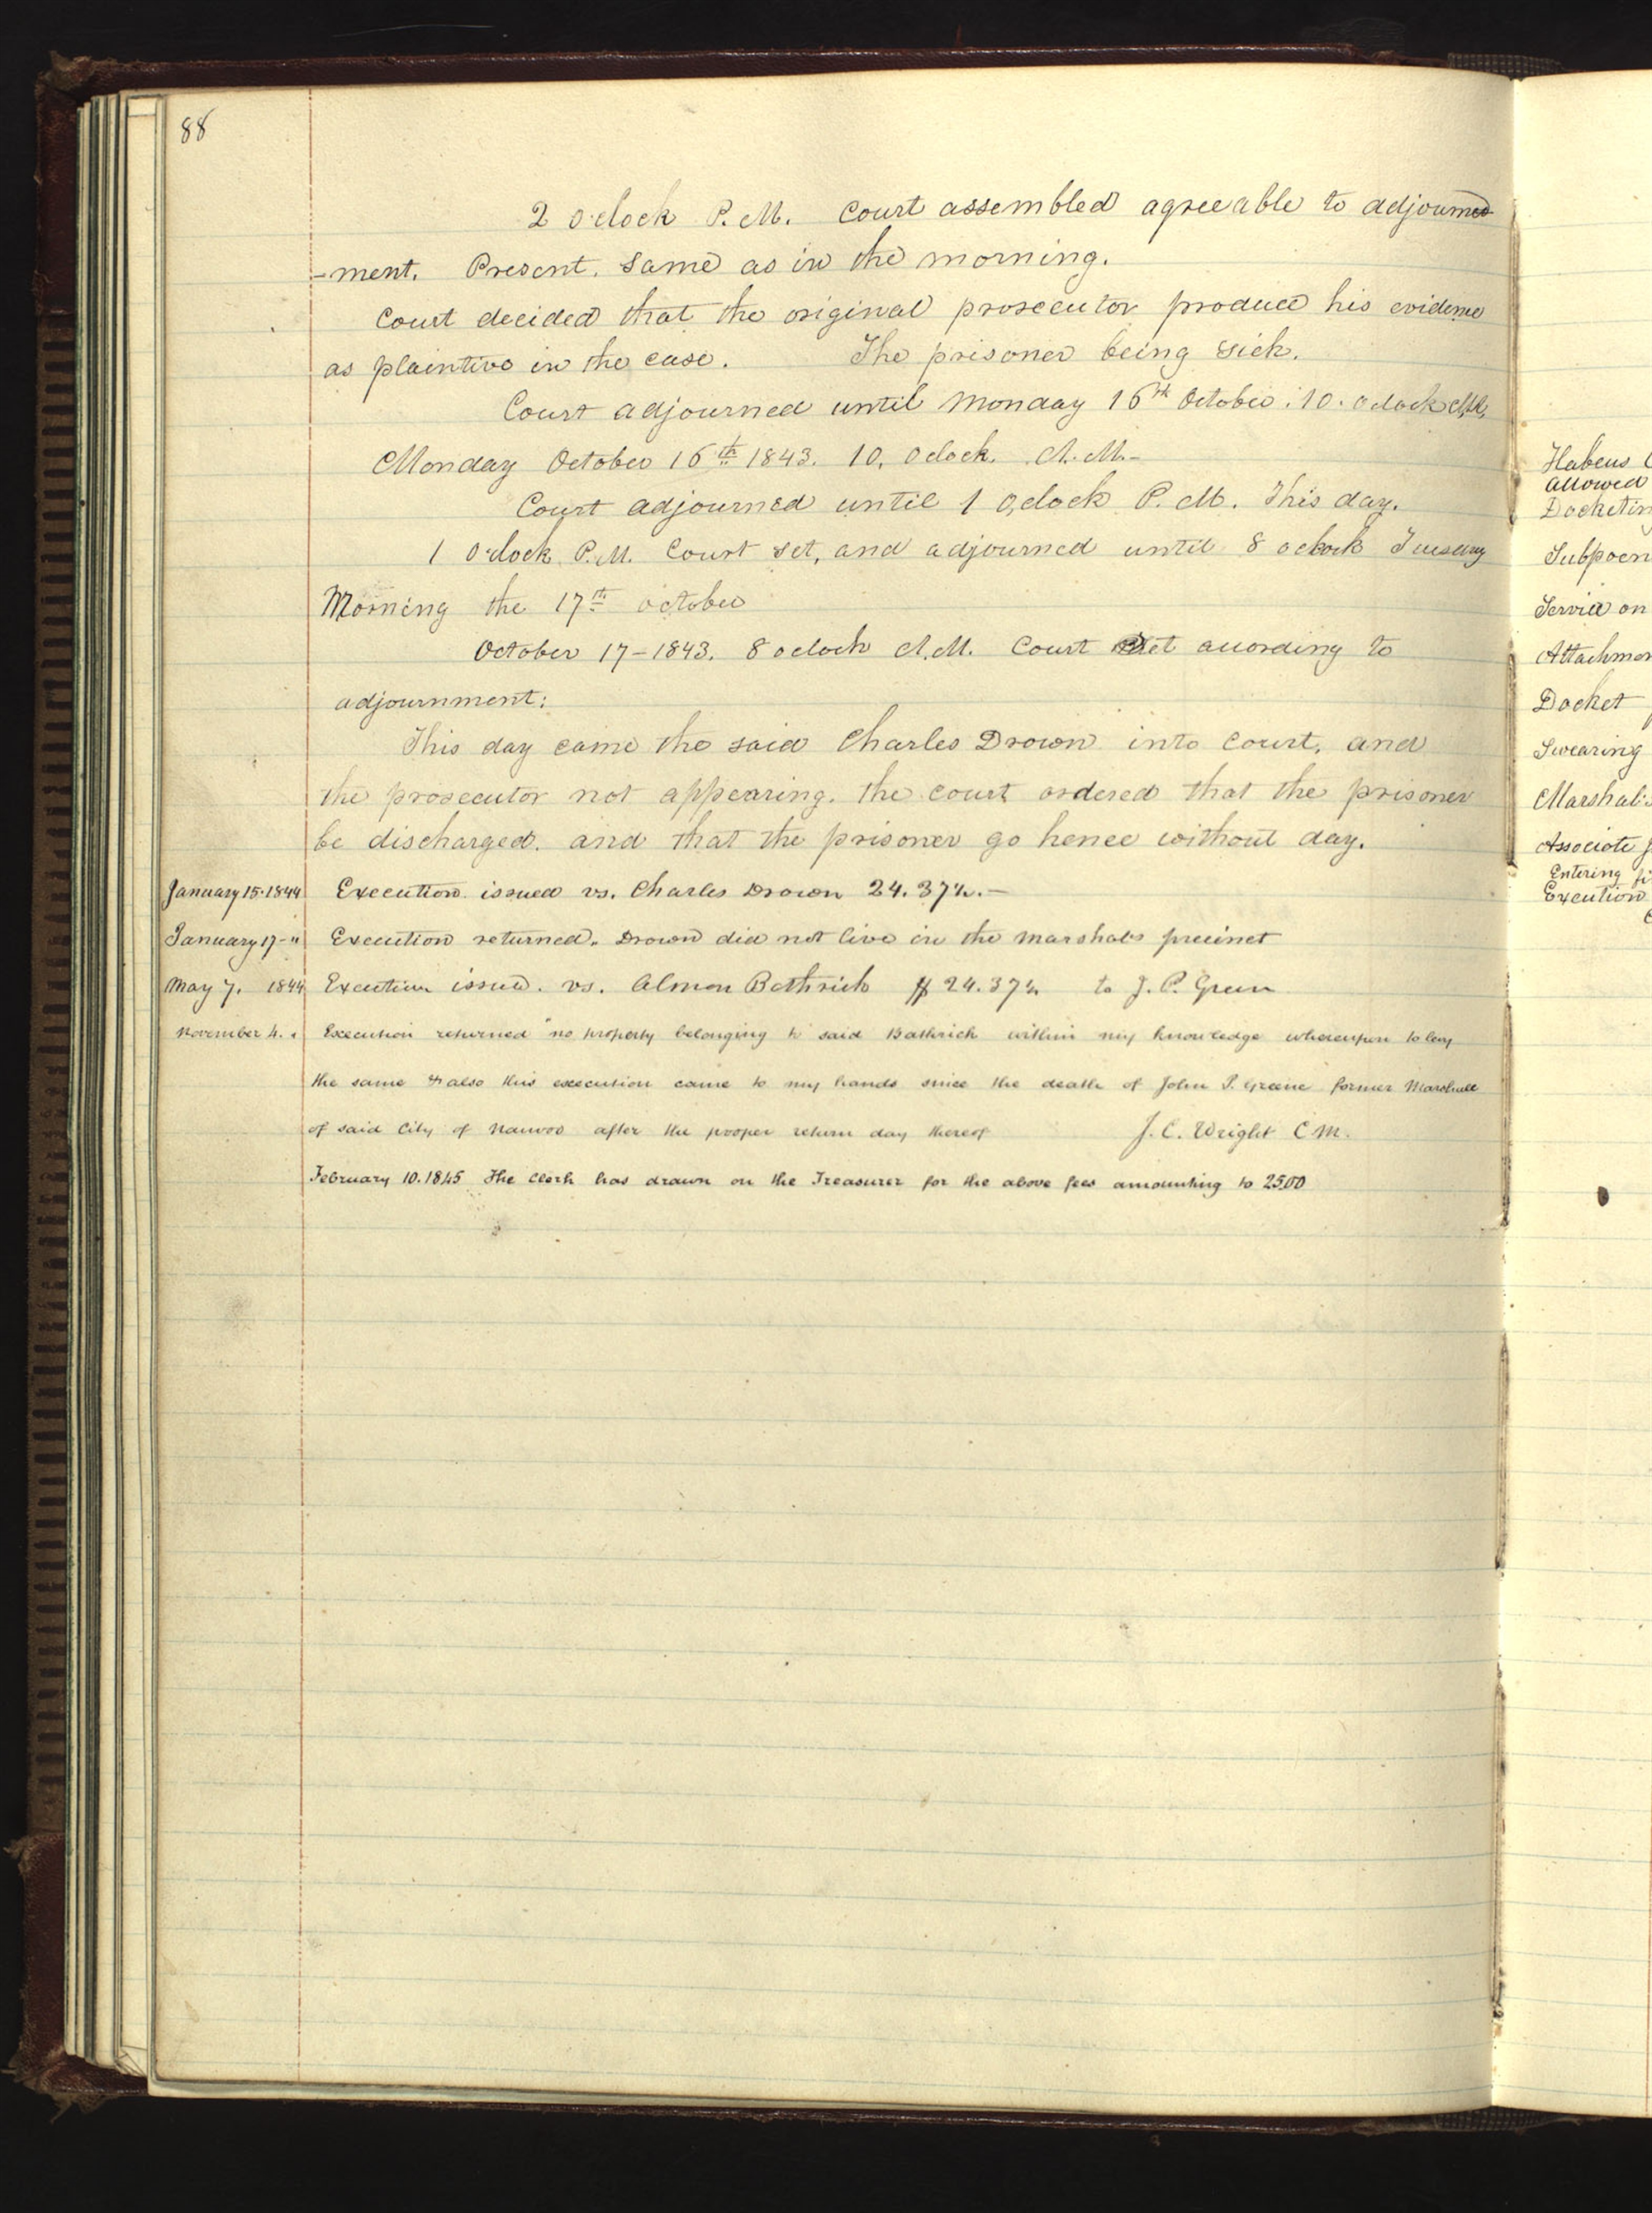 88
2 oclock P.M. Court assembled agreeable to adjourned
-ment. Present. Same as in the morning.
Court decided that the original prosecutor produce his evidence
as plaintive in the case. The prisoner being sick.
Court adjourned until Monday 16th October. 10. oclock A.M.
Monday October 16th 1843. 10, Oclock. A.M.-
Court adjourned until 1 O,clock P.M. This day.
1 Oclock P.M. Court set, and adjourned until 8 oclock Tuesday
Morning the 17th october
October 17-1843. 8 oclock A.M. Court set according to
adjournment:
This day came the said Charles Drown into Court, and
the prosecutor not appearing. the court ordered that the prisoner
be discharged. and that the prisoner go hence without day.
January 15.1844 Execution issued vs. Charles Drown 24.37½.-
January 17-" Execution returned. Drown did not live in the marshals precinct
May 7. 1844 Execution issued. vs. Almon Bathrick $24.37½ to J.P. Green
November 4. " Execution returned "no property belonging to said Bathrick within my knowledge whereupon to levy
the same & also this execution came to my hands since the death of John P. Greene former Marshall
of said City of Nauvoo after the proper return day thereof J.C. Wright C M.
February 10.1845 The Clerk has drawn on the Treasurer for the above fees amounting to 25.00
Habeus
allowed
Docketin
Subpoen
Service on
Attachmen
Docket
Swearing
Marshal's
Associate J
Entering
Execution